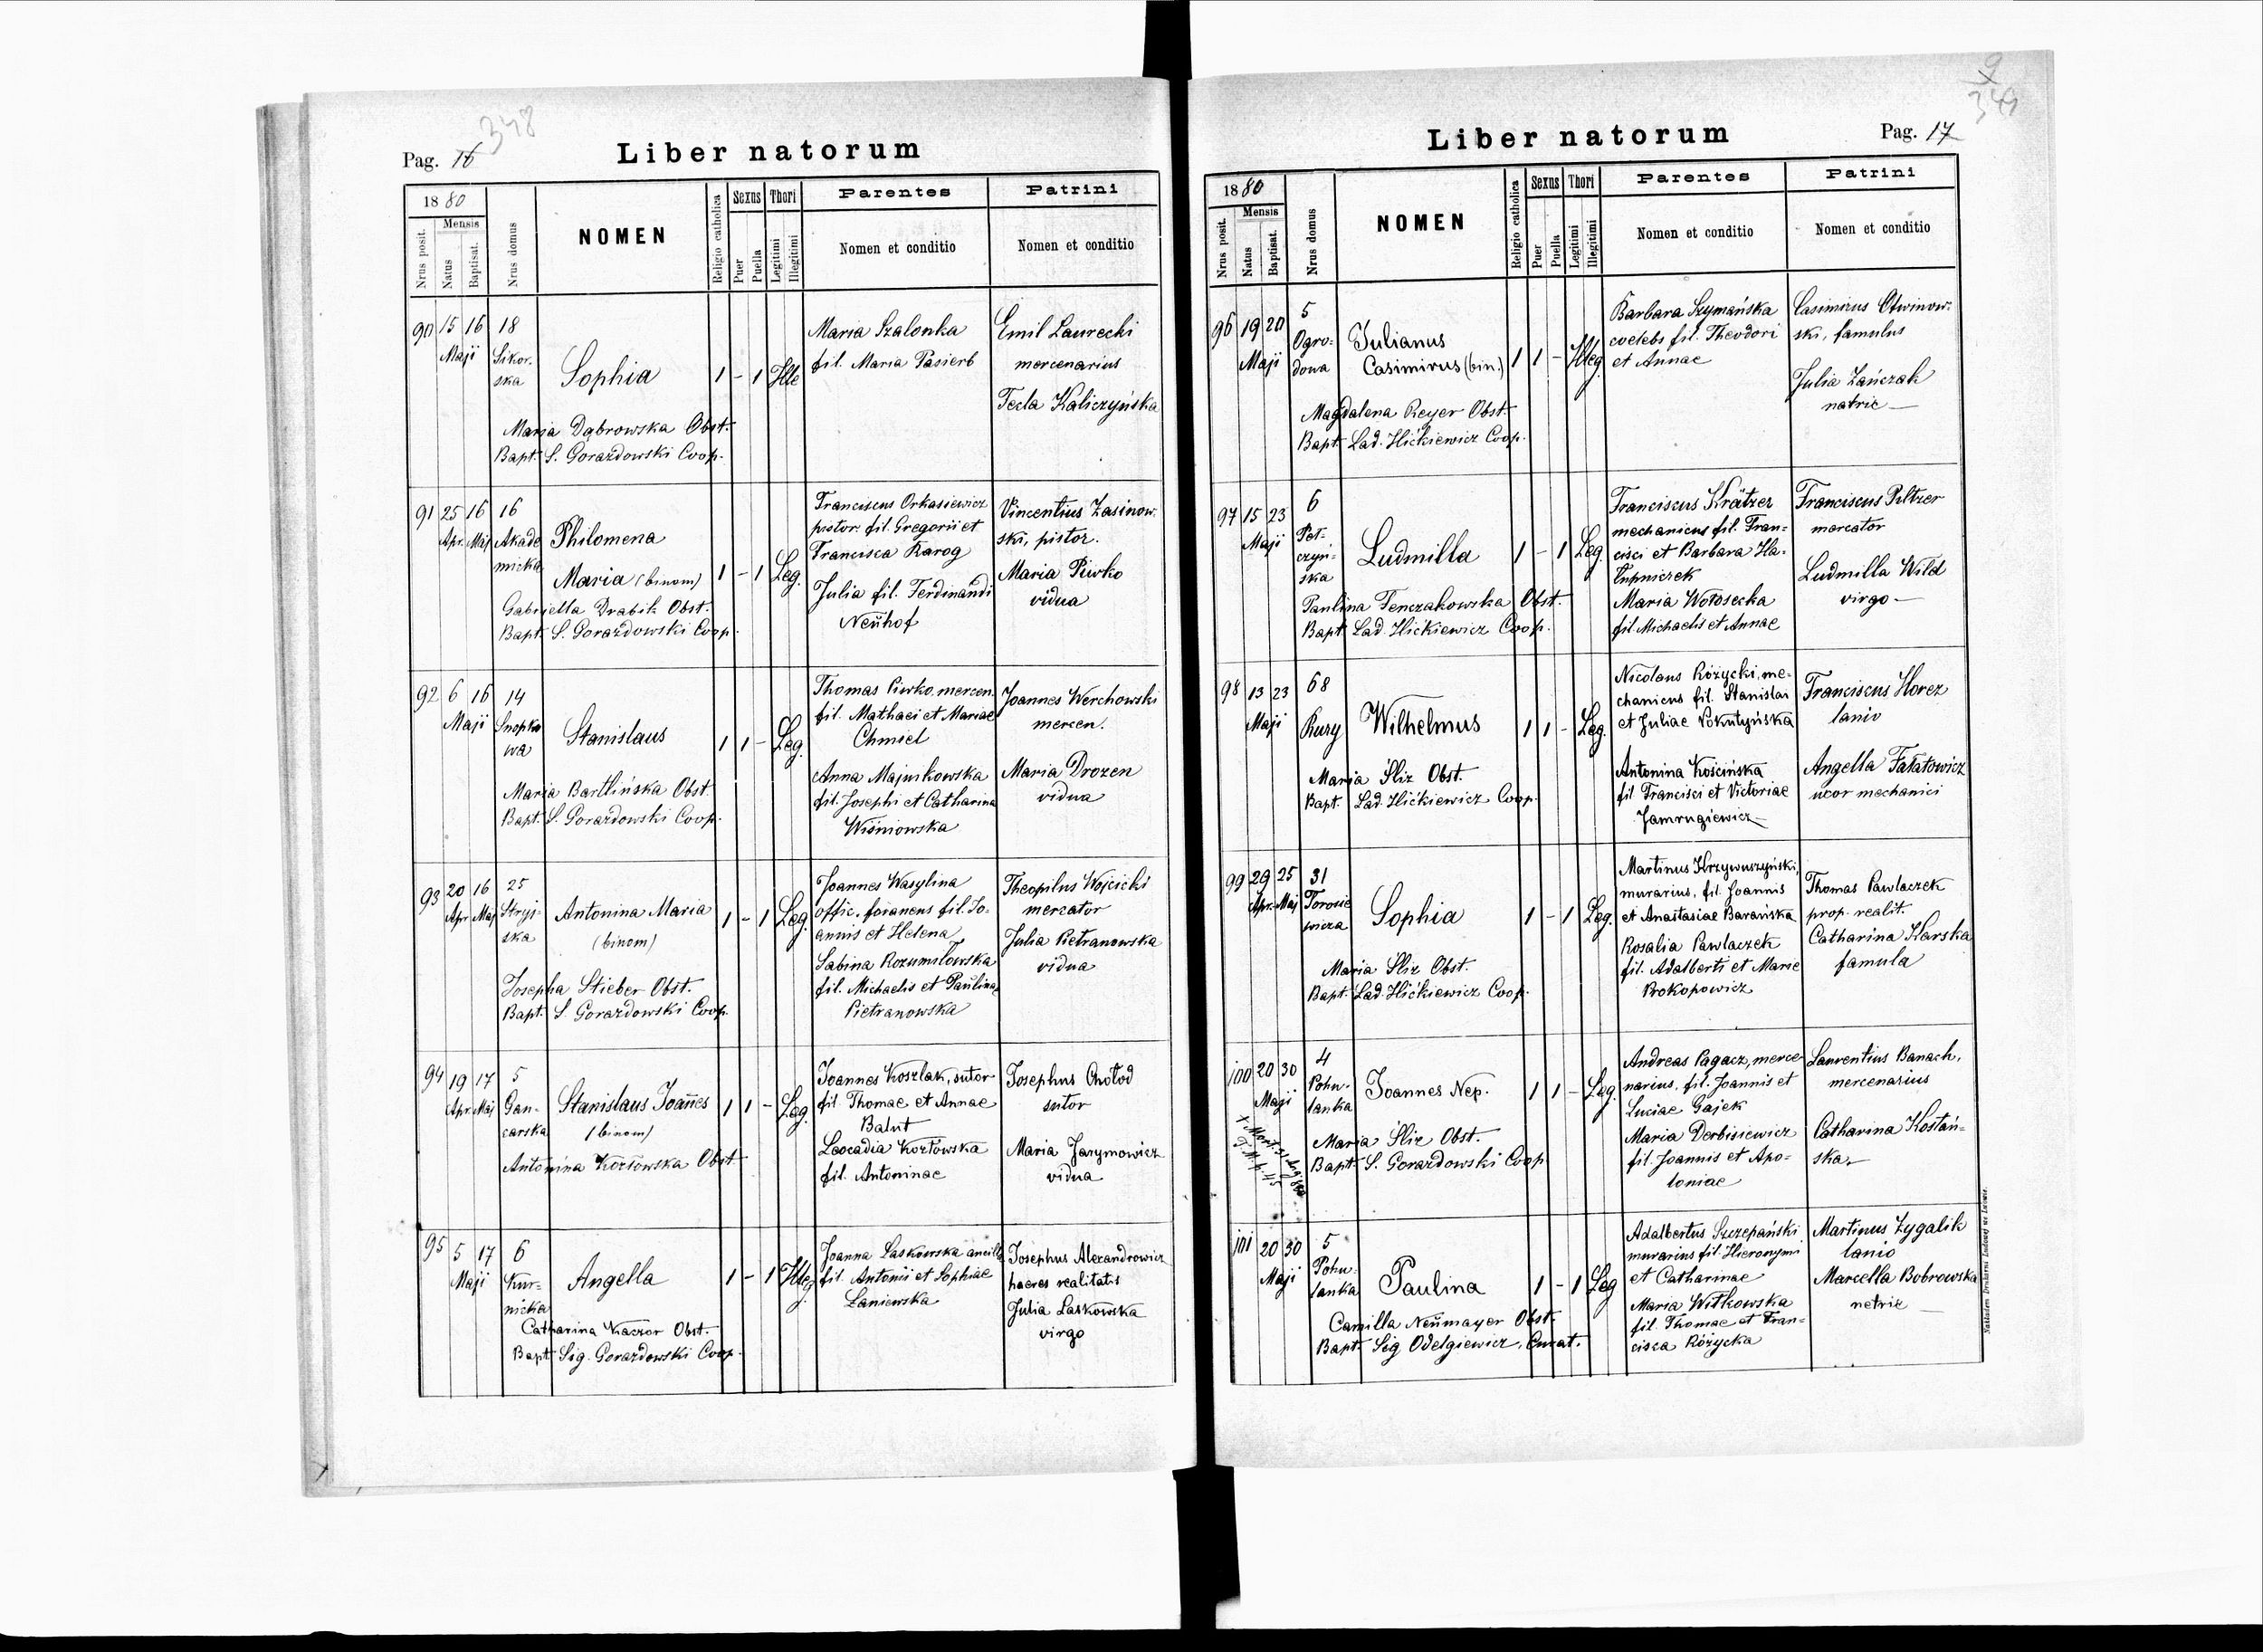 348
Pag. 16
Liber natorum
1880
Nrus posit.
Mensis
Natus
Baptisat.
Nrus domus
NOMEN
Religio catholica
Sexus
Puer
Puella
Thori
Legitimi
Illegitimi
Parentes
Nomen et conditio
Patrini
Nomen et conditio
90 15 16 18
Maji Sikor-
ska
Sophia
1 - 1 Ille
Maria Szalonka
fil. Maria Pasierb
Emil Laurecki
mercenarius
Tecla Kaliczyńska
Maria Dąbrowska Obst.
Bapt. S. Gorazdowski Coop.
91 25 16 16
Apr. Maj Akade
micka
Philomena
Maria (binom)
1 - 1 Leg.
Franciscus Orkasiewicz
pistor. fil. Gregorii et
Francisca Karog
Julia fil. Ferdinandi
Neŭhof
Vincentius Zasinow-
ski, pistor.
Maria Piwko
vidua
Gabriella Drabik Obst.
Bapt. S. Gorazdowski Coop.
92 6 16 14
Maji Snopko
wa
Stanislaus
1 1 - Leg.
Thomas Piwko, mercen.
fil. Mathaei et Mariae
Chmiel
Anna Majurkowska
fil. Josephi et Catharina
Wiśniowska
Joannes Werchowski
mercen.
Maria Drozen
vidua
Maria Bartlińska Obst.
Bapt. S. Gorazdowski Coop.
93 20 16 25
Apr Maj Stryj-
ska
Antonina Maria
(binom)
1 - 1 Leg.
Joannes Wasylina
offic. foraneus fil. Jo-
annis et Helena
Sabina Rozumiłowska
fil. Michaelis et Paulina
Pietranowska
Theopilus Wojcicki
mercator
Julia Pietranowska
vidua
Josepha Stieber Obst.
Bapt. S. Gorazdowski Coop.
94 19 17 5
Apr. Maj Gan-
carska
Stanislaus Joańes
(binom)
1 1 - Leg.
Joannes Koszlak, sutor
fil. Thomae et Annae
Balut
Leocadia Kozłowska
fil. Antoninae
Josephus Chołod
sutor
Maria Jarymowicz
vidua
Antonina Kozłowska Obst.
95 5 17 6
Maji Kur-
nicka
Angella
1 - 1 Illeg.
Joanna Laskowska ancilla
fil. Antonii et Sophiae
Łaniewska
Josephus Alexandrowicz
haeres realitatis
Julia Laskowska
virgo
Catharina Kaczor Obst.
Bapt. Sig. Gorazdowski Coop.
9
349
Liber natorum
Pag. 17
1880
Nrus posit.
Mensis
Natus
Baptisat.
Nrus domus
NOMEN
Religio catholica
Sexus
Puer
Puella
Thori
Legitimi
Illegitimi
Parentes
Nomen et conditio
Patrini
Nomen et conditio
96 19 20 5
Maji Ogro-
dowa
Julianus
Casimirus (bin.)
1 1 - Illeg.
Barbara Szymańska
coelebs fil. Theodori
et Annae
Casimirus Otwinow-
ski, famulus
Julia Zańczak
natric
Magdalena Reyer Obst.
Bapt. Lad. Hićkiewicz Coop.
97 15 23 6
Maji Peł-
czyń-
ska
Ludmilla
1 - 1 Leg.
Franciscus Krätzer
mechanicus fil. Fran-
cisci et Barbara Ha-
łupniczek
Maria Wołosecka
fil. Michaelis et Annae
Franciscus Peltzer
mercator
Ludmilla Wild
virgo
Paulina Tenczakowska Obst.
Bapt. Lad. Hićkiewicz Coop.
98 13 23 68
Maji Rury
Wilhelmus
1 1 - Leg.
Nicolaus Różycki, me-
chanicus fil. Stanislai
et Juliae Pokutyńska
Antonina Kościńska
fil Francisci et Victoriae
Jamrugiewicz
Franciscus Horez
lanio
Angella Fałatowicz
uxor mechanici
Maria Śliz Obst.
Bapt. Lad. Hićkiewicz Coop.
99 29 25 31
Apr. Maj Torosie
wicza
Sophia
1 - 1 Leg.
Martinus Krzywuszyński,
murarius, fil. Joannis
et Anastasiae Barańska
Rosalia Pawlaczek
fil. Adalberti et Marie
Prokopowicz
Thomas Pawlaczek
prop. realit.
Catharina Karska
famula
Maria Śliz Obst.
Bapt. Lad. Hićkiewicz Coop.
100 20 30 4
Maji Pohu-
lanka
Joannes Nep.
1 1 - Leg.
Andreas Pagacz, merce
narius, fil. Joannis et
Luciae Gajek
Maria Derbisiewicz
fil. Joannis et Apo-
loniae
Laurentius Banach,
mercenarius
Catharina Kostań-
ska
Maria Śliz Obst.
Bapt. S. Gorazdowski Coop
101 20 30 5
Maji Pohu-
lanka
Paulina
1 - 1 Leg
Adalbertus Szczepański
murarius fil. Hieronymi
et Catharinae
Maria Witkowska
fil. Thomae et Fran-
cisca Różycka
Martinus Zygalik
lanio
Marcella Bobrowska
netrix
Camilla Neŭmayer Obst.
Bapt. Sig Odelgiewicz, Curat.
Nakładem Drukarni Ludowej we Lwowie.